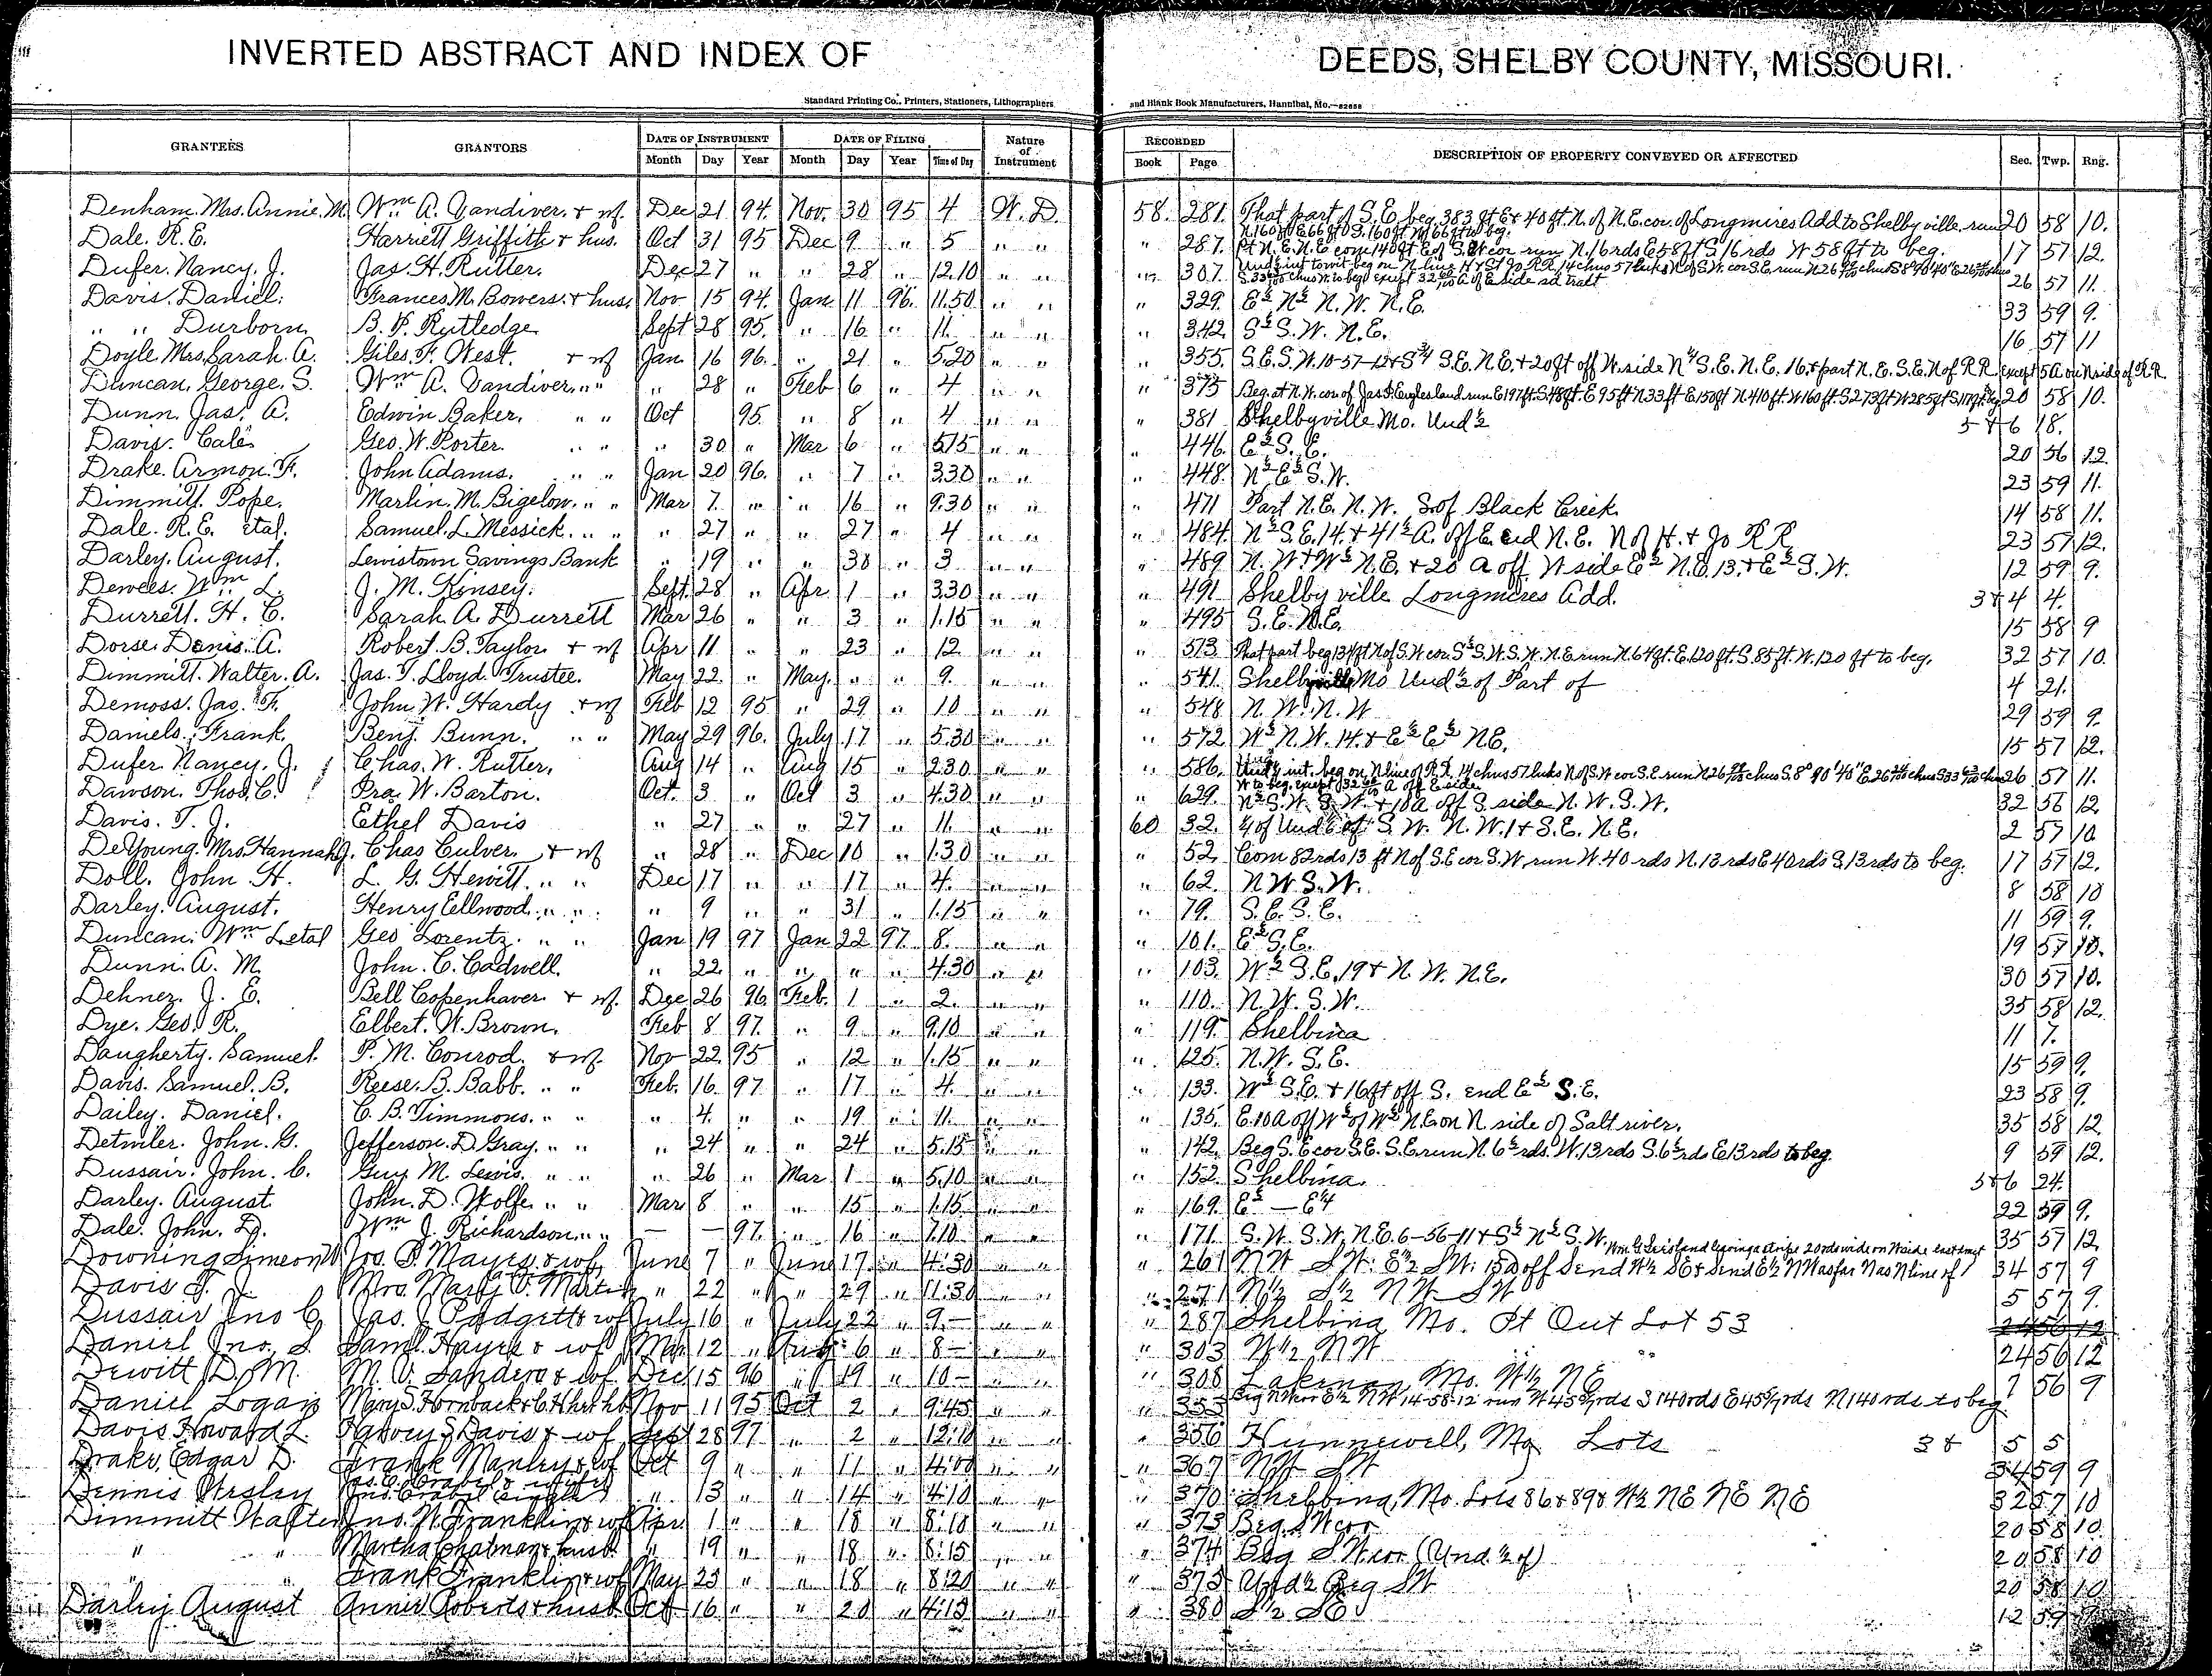 INVERTED ABSTRACT AND INDEX OF DEEDS, SHELBY COUNTY, MISSOURI.
Standard Printing Co., Printers, Stationers, Lithographers and Blank Book Manufacturers, Hannibal, Mo.—82658
GRANTEES GRANTORS DATE OF INSTRUMENT DATE OF FILING Nature of Instrument RECORDED DESCRIPTION OF PROPERTY CONVEYED OR AFFECTED Sec. Twp. Rng.
Month Day Year Month Day Year Time of Day Book Page
Denham. Mrs. Annie. M. Wm A. Vandiver. & wf. Dec 21 94. Nov. 30 95 4 W. D. 58. 281. That part of S.E. beg. 383 ft E & 40 ft. N. of N.E. cor. of Longmires Add to Shelbyville, run N.160 ft E 66 ft S. 160 ft W 66 ft to beg. 20 58 10.
Dale. R. E. Harriett Griffith & hus. Oct 31 95 Dec 9 " 5 " " " 287. Pt N.E. N.E. com 140 ft E of S.W. cor run N. 16 rds E 58 ft S. 16 rds W 58 ft to beg. 17 57 12.
Dufer. Nancy. J. Jas. H. Rutter. Dec 27 " " 28 " 12.10 " " " 307. 26 57 11.
Davis. Daniel. Frances M. Bowers. & hus. Nov. 15 94. Jan. 11 96. 11.50 " " " 329. E½ N½ N.W. N.E. 33 59 9.
" " Durborn. B. F. Rutledge Sept 28 95. " 16 " 11. " " " 342. S½ S.W. N.E. 16 57 11
Doyle Mrs. Sarah. A. Giles. F. West. & wf Jan 16 96. " 21 " 5.20 " " " 355. S.E. S.W. 10-57-12 & S¾ S.E. N.E. & 20 ft off W. side N¼ S.E. N.E. 16. & part N.E. S.E. N of R.R. except 5 A on N side of R.R.
Duncan. George. S. Wm A. Vandiver. " " " 28 " Feb 6 " 4 " " " 375 Beg. at N.W. cor of Jas. F. Engles land run E 197 ft. S. 48 ft. E 95 ft N 33 ft E. 150 ft N. 410 ft. W 160 ft. S 273 ft W 285 ft S 117 ft 20 58 10.
Dunn. Jas. A. Edwin Baker. " " Oct 95. " 8 " 4 " " " 381 Shelbyville Mo. Und ½ 5 & 6 18.
Davis. Cale Geo. W. Porter. " " " 30 " Mar 6 " 5.15 " " " 446. E½ S. E. 20 56 12.
Drake. Armon. F. John Adams. " " Jan 20 96. " 7 " 3.30 " " " 448. N½ E½ S.W. 23 59 11.
Dimmitt. Pope. Marlin. M. Bigelow. " " Mar 7. " " 16 " 9.30 " " " 471 Part N.E. N.W. S. of Black Creek. 14 58 11.
Dale. R. E. etal. Samuel. L. Messick. " " " 27 " " 27 " 4 " " " 484. N½ S.E. 14. & 41½ A. off E. end N.E. N of H. & Jo RR 23 57 12.
Darley. August. Lewistown Savings Bank " 19 " " 30 " 3 " " " 489. N. W & W½ N.E. & 20 A off W side E½ N.E. 13. & E½ S.W. 12 59 9.
Dewees. Wm L. J. M. Kinsey. Sept. 28 " Apr 1 " 3.30 " " " 491. Shelbyville Longmires Add. 3 & 4 4.
Durrett. H. C. Sarah A. Durrett Mar 26 " " 3 " 1.15 " " " 495 S.E. N.E. 15 58 9
Dorse. Denis. A. Robert. B. Taylor & wf Apr 11 " " 23 " 12. " " " 513. That part beg 134 ft N of S.W cor. S½ S.W. S.W. N.E run N. 64 ft. E. 120 ft. S. 85 ft. W. 120 ft to beg. 32 57 10.
Dimmitt. Walter. A. Jas. T. Lloyd. Trustee. May 22. " May. " " 9. " " " 541. Shelbyville Mo Und ½ of Part of 4 21.
Demoss. Jas. F. John W. Hardy & wf Feb 12 95 " 29 " 10 " " " 548 N. W. N. W 29 59 9.
Daniels. Frank. Benj. Bunn. " " May 29 96. July 17 " 5.30 " " " 572. W½ N.W. 14. & E½ E½ NE. 15 57 12.
Dufer. Nancy. J. Chas. W. Rutter. Aug 14 " Aug 15 " 2.30 " " " 586. 26 57 11.
Dawson. Thos. C. Ira. W. Barton. Oct. 3 " Oct 3 " 4.30 " " " 629. N½ S.W. S.W. & 10 A off S. side N. W. S. W. 32 56 12.
Davis. T. J. Ethel Davis " 27 " " 27 " 11. " " 60 32. S. W. N. W. 1 & S.E. N.E. 2 57 10
De Young. Mrs. Hannah J. Chas Culver. & wf " 28 " Dec 10 " 1.30 " " " 52. Com 82 rds 13 ft N of S.E cor S.W. run W. 40 rds N. 13 rds E 40 rds S. 13 rds to beg. 17 57 12.
Doll. John H. L. G. Hewitt. " " Dec 17 " " 17 " 4. " " " 62. N W S. W. 8 58 10
Darley. August. Henry Ellwood. " " " 9 " " 31 " 1.15 " " " 79. S. E. S. E. 11 59 9.
Duncan. Wm L etal Geo Lorentz. " " Jan 19 97 Jan 22 97 8. " " " 101. E½ S.E. 19 57 10.
Dunn. A. M. John. C. Cadwell. " 22. " " " " 4.30 " " " 103. W½ S.E. 19 & N. W. N.E. 30 57 10.
Dehner. J. E. Bell Copenhaver & wf. Dec 26 96 Feb. 1 " 2. " " " 110. N.W. S.W. 35 58 12.
Dye. Geo. R. Elbert. W. Brown. Feb 8 97. " 9 " 9.10 " " " 119. Shelbina 11 7.
Daugherty. Samuel. P. M. Conrod. & wf. Nov 22. 95 " 12 " 1.15 " " " 125. N.W. S.E. 15 59 9.
Davis. Samuel. B. Reese. B. Babb. " " Feb. 16 97 " 17 " 4. " " " 133. W½ S.E. & 16 ft off S. end E½ S.E. 23 58 9.
Dailey. Daniel. C. B. Timmons. " " " 4. " " 19 " 11. " " " 135. E. 10 A off W½ of W½ N.E. on N side of Salt river. 35 58 12.
Detmler. John. G. Jefferson. D. Gray. " " " 24 " " 24 " 5.15 " " " 142. Beg S. E cor S.E. S.E. run N. 6½ rds. W. 13 rds S. 6½ rds E 13 rds to beg. 9 59 12.
Dussair. John. C. Guy. M. Lewis. " " " 26 " Mar 1 " 5.10 " " " 152. Shelbina. 5 & 6 24.
Darley. August John. D. Wolfe " " Mar 8 " " 15 " 1.15 " " " 169. E½ — E¼ 22 59 9.
Dale. John. D. Wm J. Richardson. " " — — 97. " 16 " 7.10 " " " 171. S. W. S.W. N.E. 6-56-11 & S½ N½ S. W. 35 57 12
Downing Simeon Jos. S. Mayes & wf June 7 " June 17 " 4:30 " " " 261 NW SW: E½ SW: 15 A off S end W½ SE & S end E½ NW as far N as N line of Wm G land leaving a strip 20 rds wide on W side 34 57 9
Davis T. J. Mrs. Mary V. Martin " 22 " " 29 " 11:30 " " " 271 N½ S½ NW SW 5 57 9.
Dussair Jno C Jas. J. Padgett & wf July 16 " July 22 " 9 — " " " 287 Shelbina Mo. Pt Out Lot 53
Daniel Jno. S. Saml. Hayes & wf Mar 12 " Aug 6 " 8 — " " " 303 W½ NW 24 56 12
Dewitt D. M. M. V. Sanders & wf. Dec 15 96 " 19 " 10 — " " " 308 Lakenan Mo. W½ NE 7 56 9
Daniel Logan Mary S. Hornback & Nov 11 95 Oct 2 " 9:45 " " " 353 E½ NW 14-58-12 run W 45 5/7 rds S 140 rds E 45 5/7 rds N 140 rds to beg
Davis Howard L. Harvey S Davis & wf Sept 28 97 " 2 " 12:10 " " " 356 Hunnewell, Mo. Lots 3 & 5 5
Drake, Edgar D. Frank Manley & wf Oct 9 " " 11 " 4:00 " " " 367 NW SW 34 59 9
Dennis Wesley " 13 " " 14 " 4:10 " " " 370 Shelbina, Mo. Lots 86 & 89 & W½ NE NE NE 32 57 10
Dimmitt Walter Jno. W. Franklin & wf Apr. 1 " " 18 " 8:10 " " " 373 Beg. SW cor 20 58 10.
" " Martha Chatman & husb. " 19 " " 18 " 8:15 " " " 374 Beg SW cor (Und. ½ of) 20 58 10
" " Frank Franklin & wf May 23 " " 18 " 8:20 " " " 375 Und ½ Beg SW 20 58 10
Darley August Annie Roberts & husb Oct 16 " " 20 " 4:15 " " " 380 S½ SE 12 59